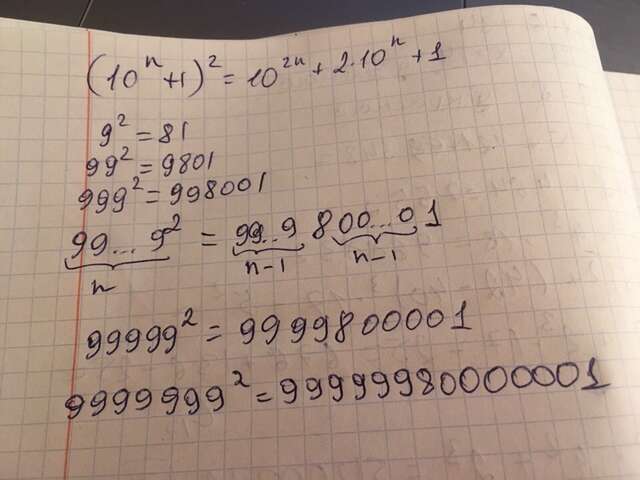 (10ⁿ+1)² = 10²ⁿ + 2·10ⁿ + 1
9² = 81
99² = 9801
999² = 998001
99...9² = 99...9 800...01
n n-1 n-1
99999² = 9999800001
9999999² = 99999980000001